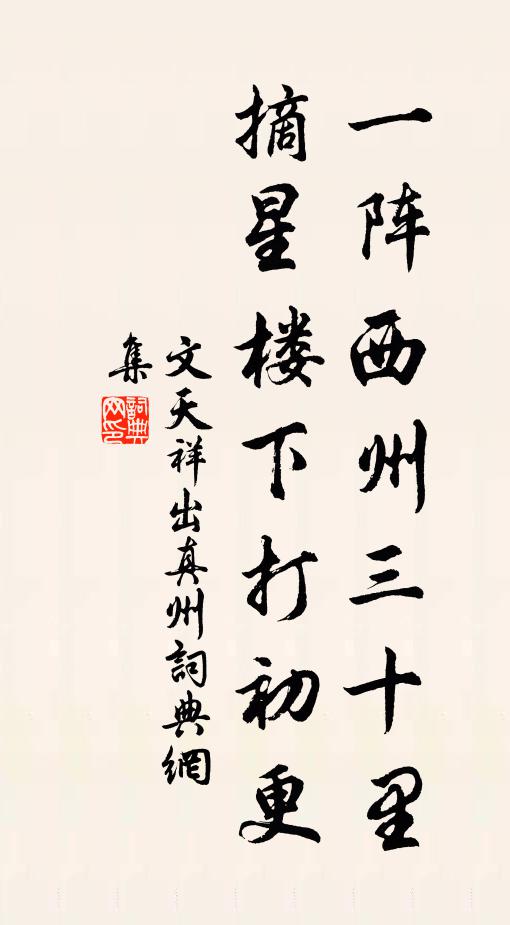 一阵西州三十里
摘星楼下打初更
文天祥出真州詞典網
集
詞典网印